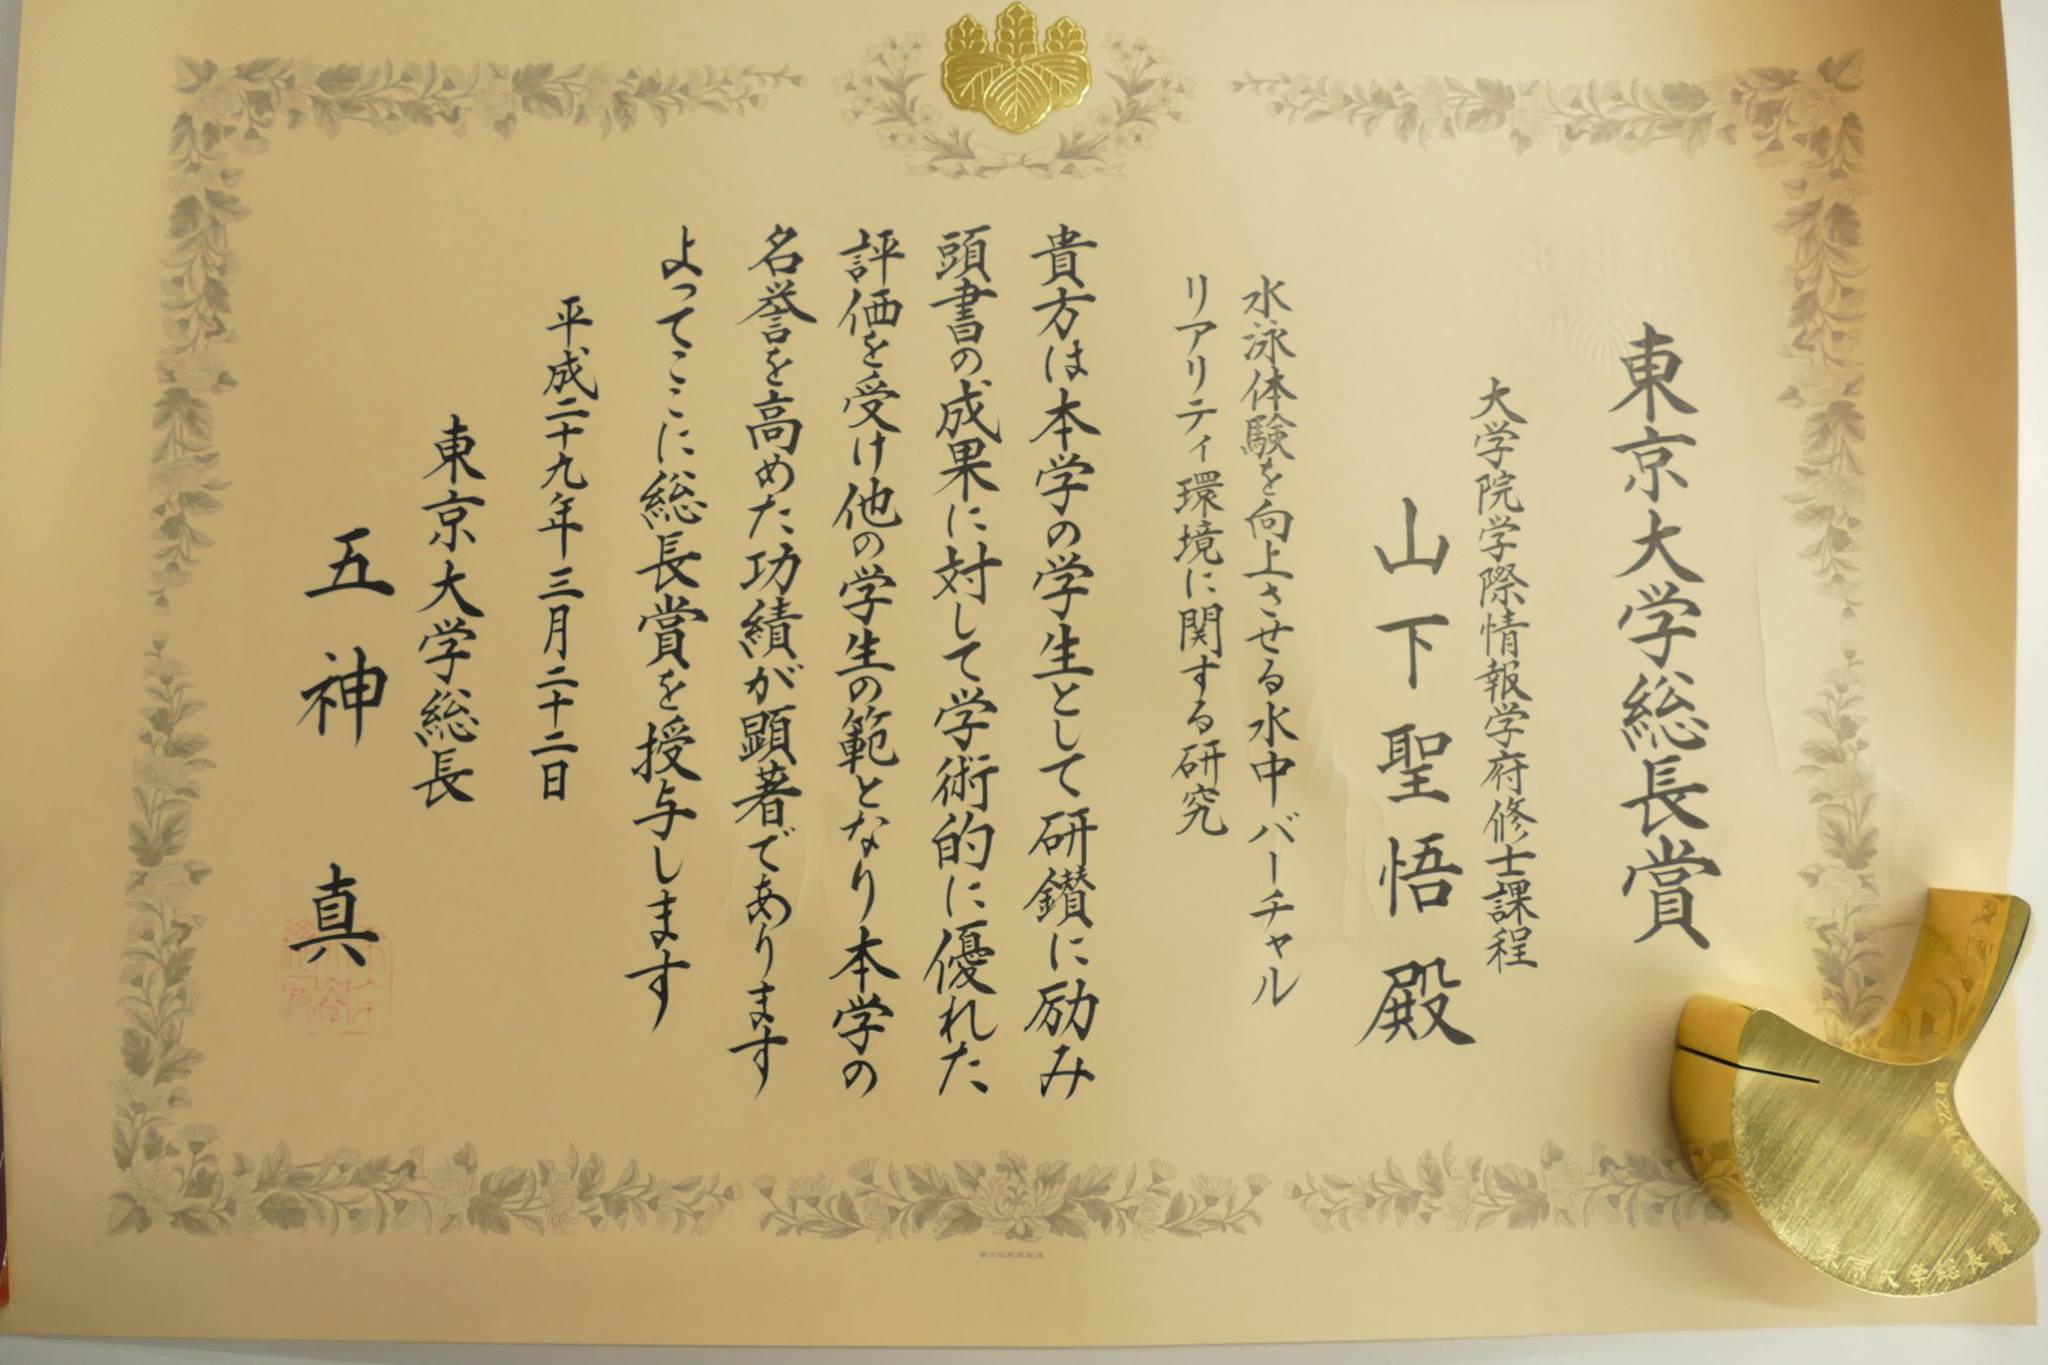 東京大学総長賞
大学院学際情報学府修士課程
山下聖悟殿
水泳体験を向上させる水中バーチャル
リアリティ環境に関する研究
貴方は本学の学生として研鑚に励み
頭書の成果に対して学術的に優れた
評価を受け他の学生の範となり本学の
名誉を高めた功績が顕著であります
よってここに総長賞を授与します
平成二十九年三月二十二日
東京大学総長
五神真
東京大学総長賞